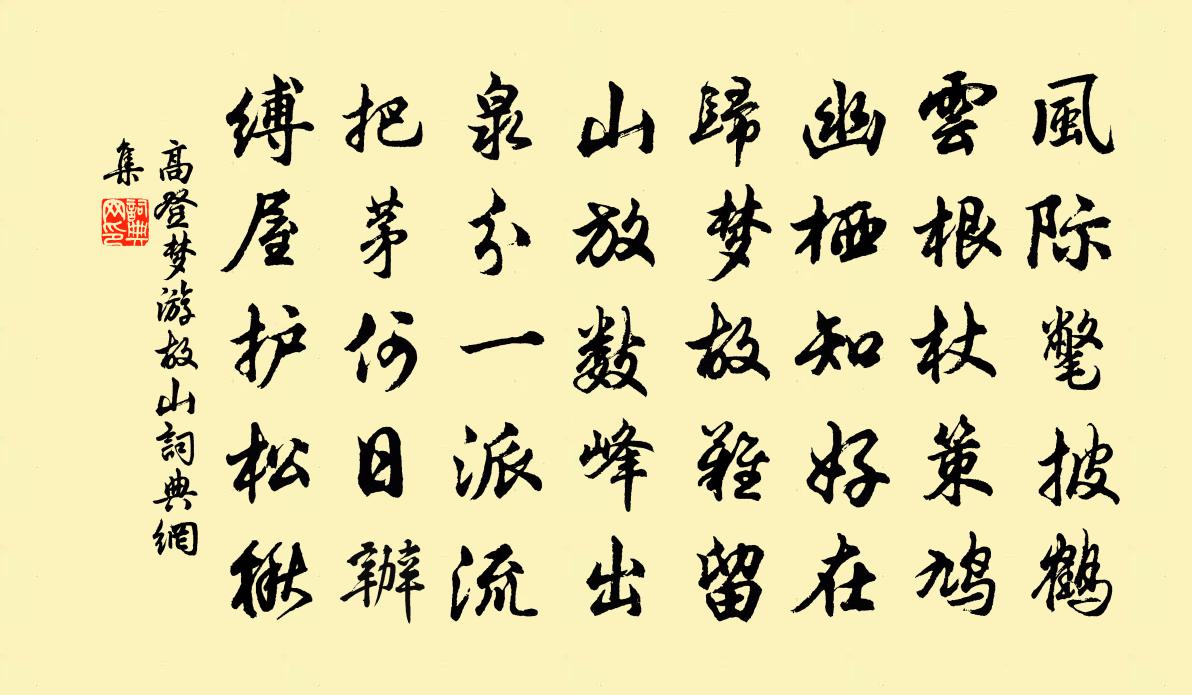 風际氅披鶴
雲根杖策鸠
幽栖知好在
歸梦故难留
山放数峰出
泉分一派流
把茅何日辦
缚屋护松楸
高登梦游故山詞典網
集
詞典网印